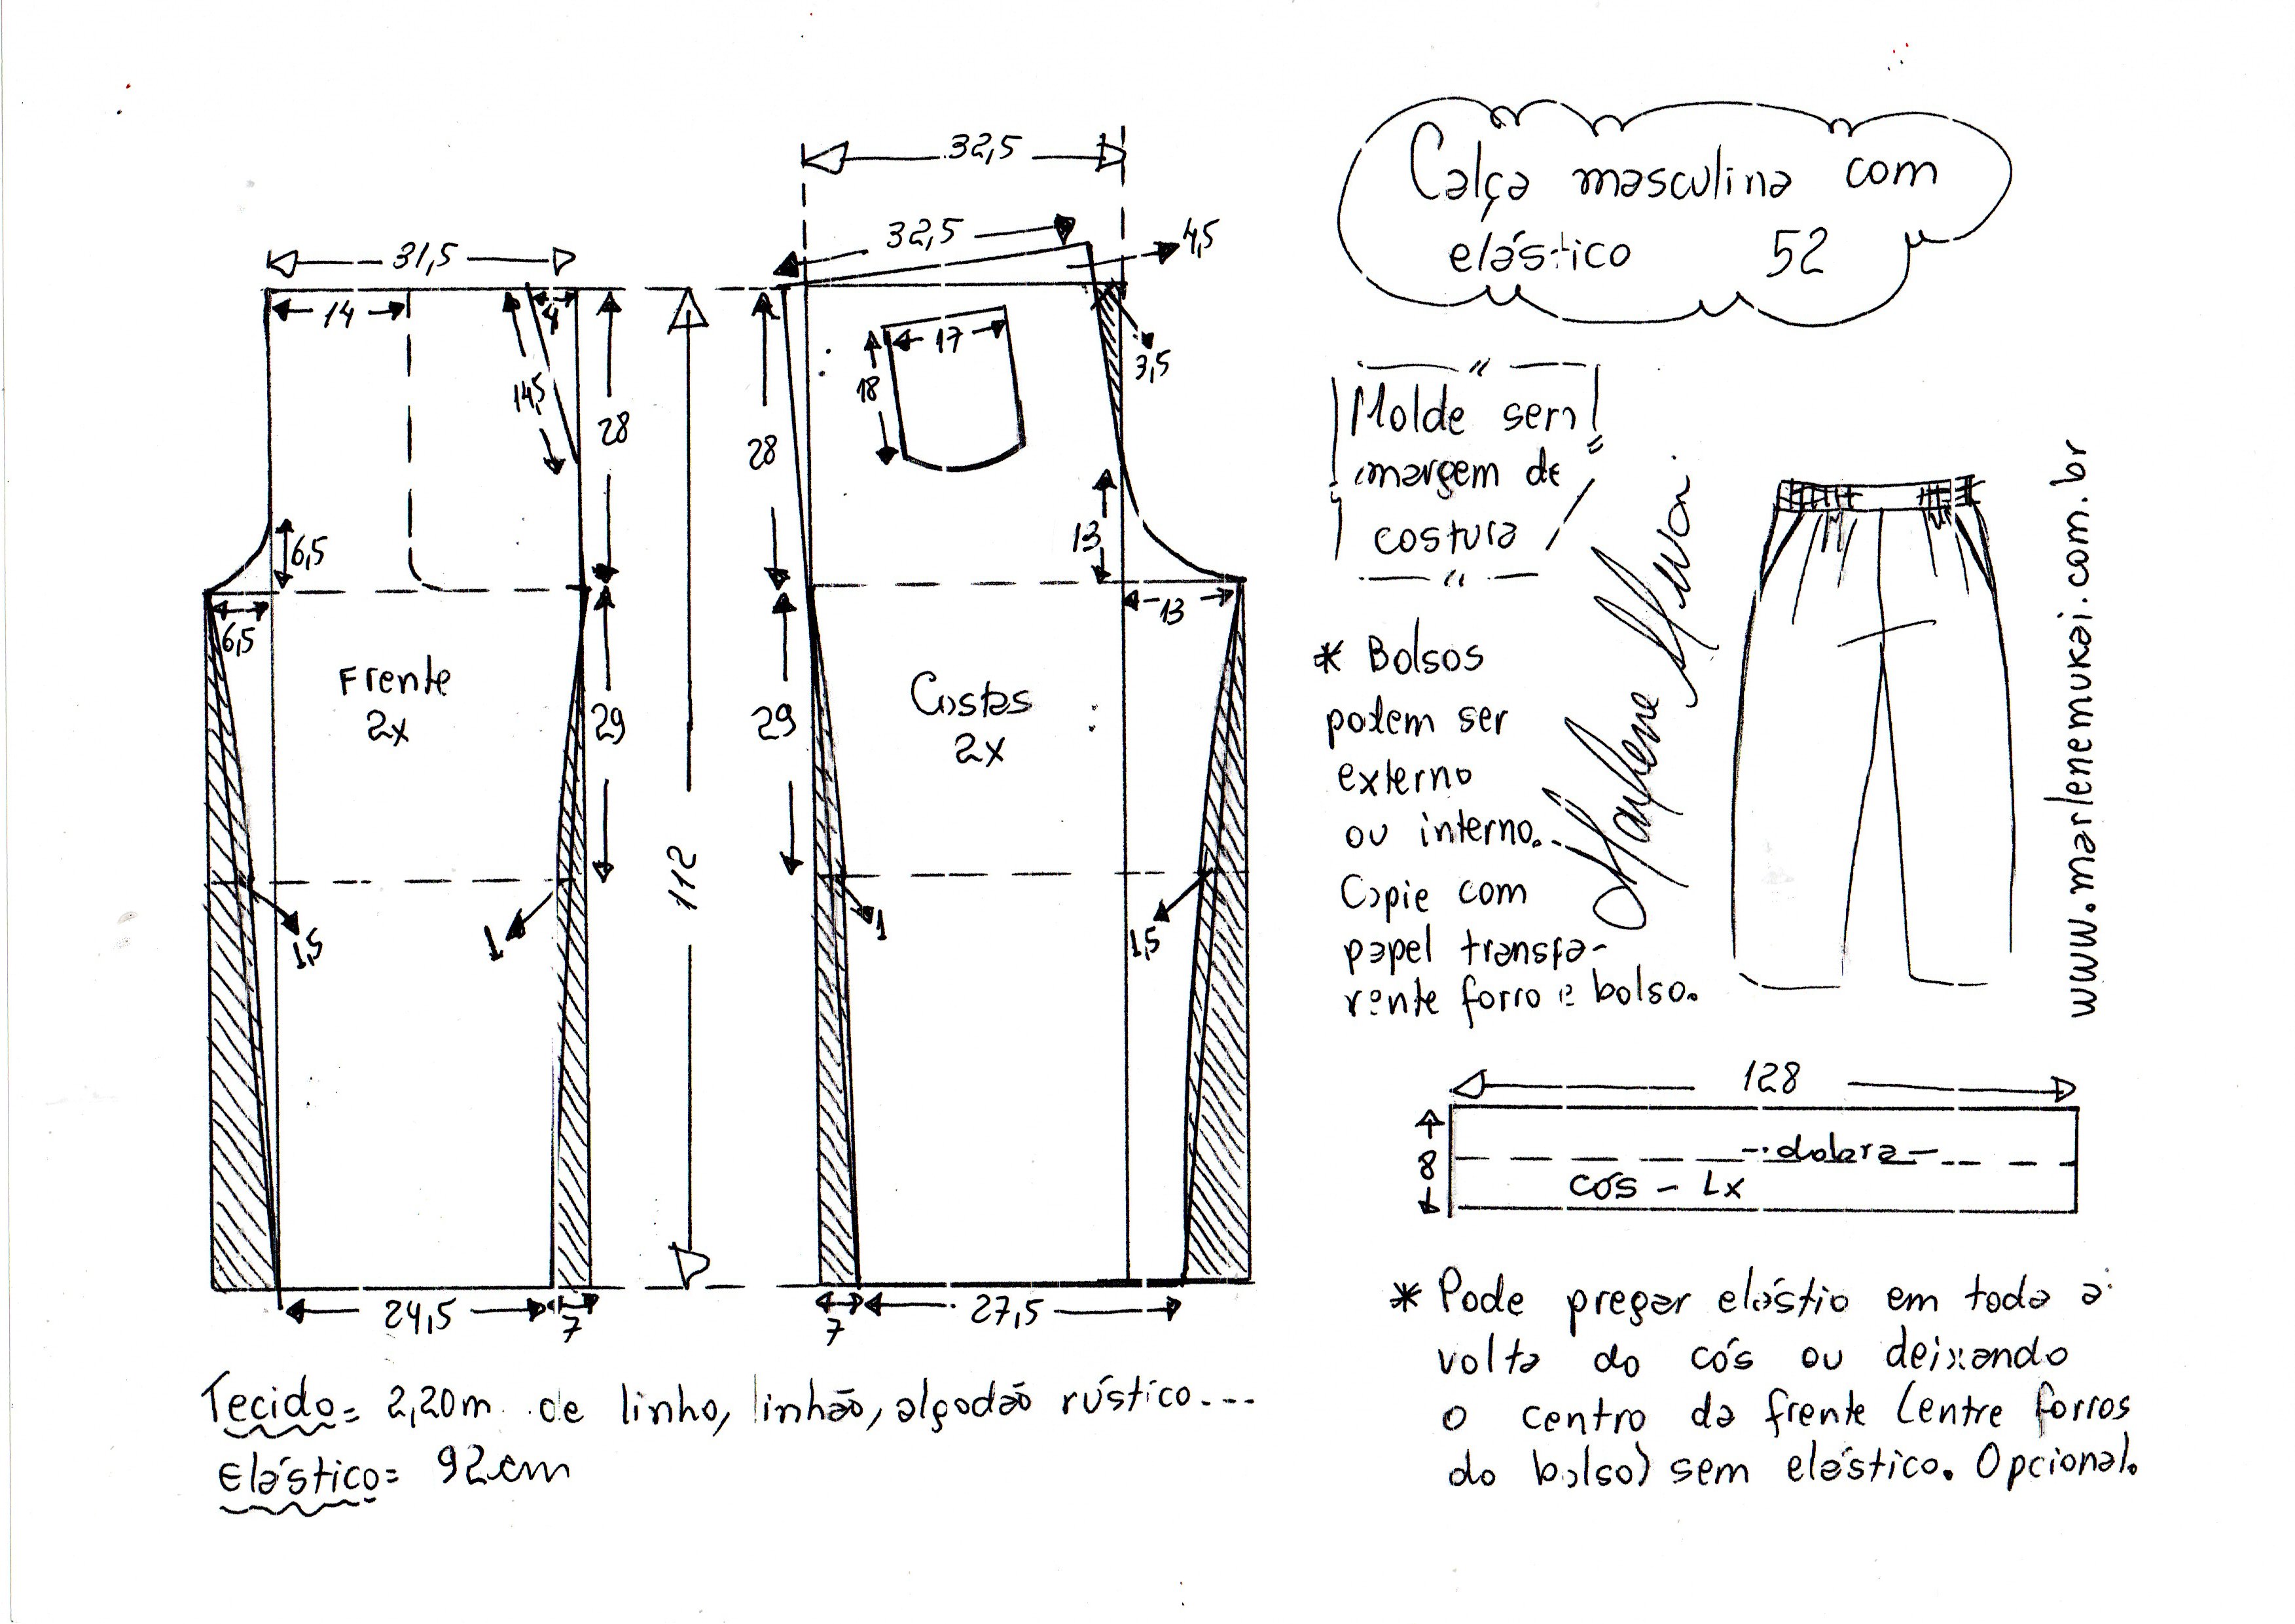 Calça masculina com
elástico 52
32,5
32,5
4,5
31,5
14
4
14,5
28
28
17
18
3,5
6,5
6,5
13
13
Frente
2x
Costas
2x
29
29
112
1,5
1
1
1,5
24,5
7
7
27,5
Molde sem
margem de
costura
* Bolsos
podem ser
externo
ou interno.
Copie com
papel transpa-
rente forro e bolso.
www.marlenemukai.com.br
128
8
dobra
cós - 1x
* Pode pregar elástio em toda a
volta do cós ou deixando
o centro da frente (entre forros
do bolso) sem elástico. Opcional.
Tecido= 2,20m de linho, linhão, algodão rústico....
Elástico= 92cm